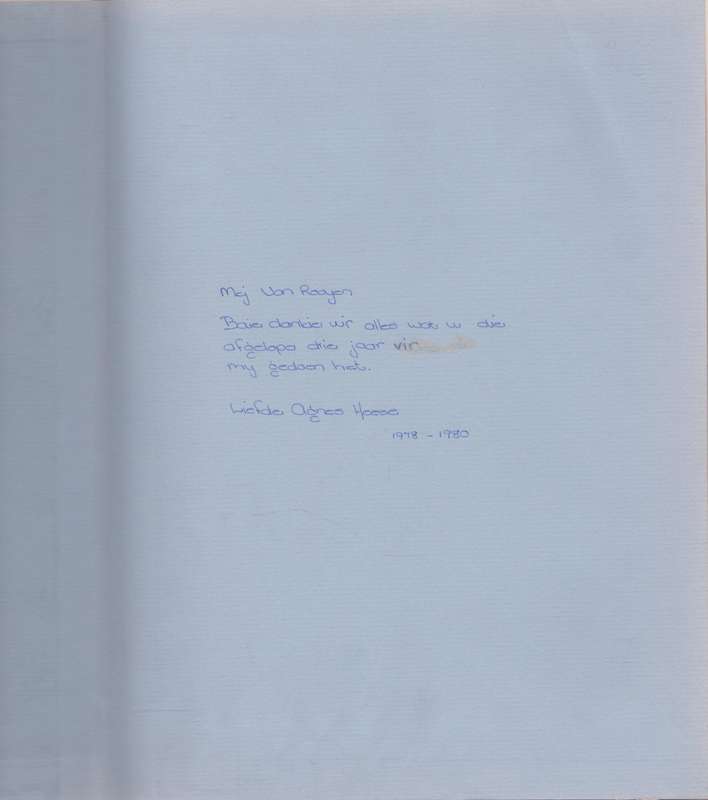 Mej Van Rooyen
Baie dankie vir alles wat u die
afgelope drie jaar vir
my gedoen het.
Liefde Agnes Heese
1978 - 1980